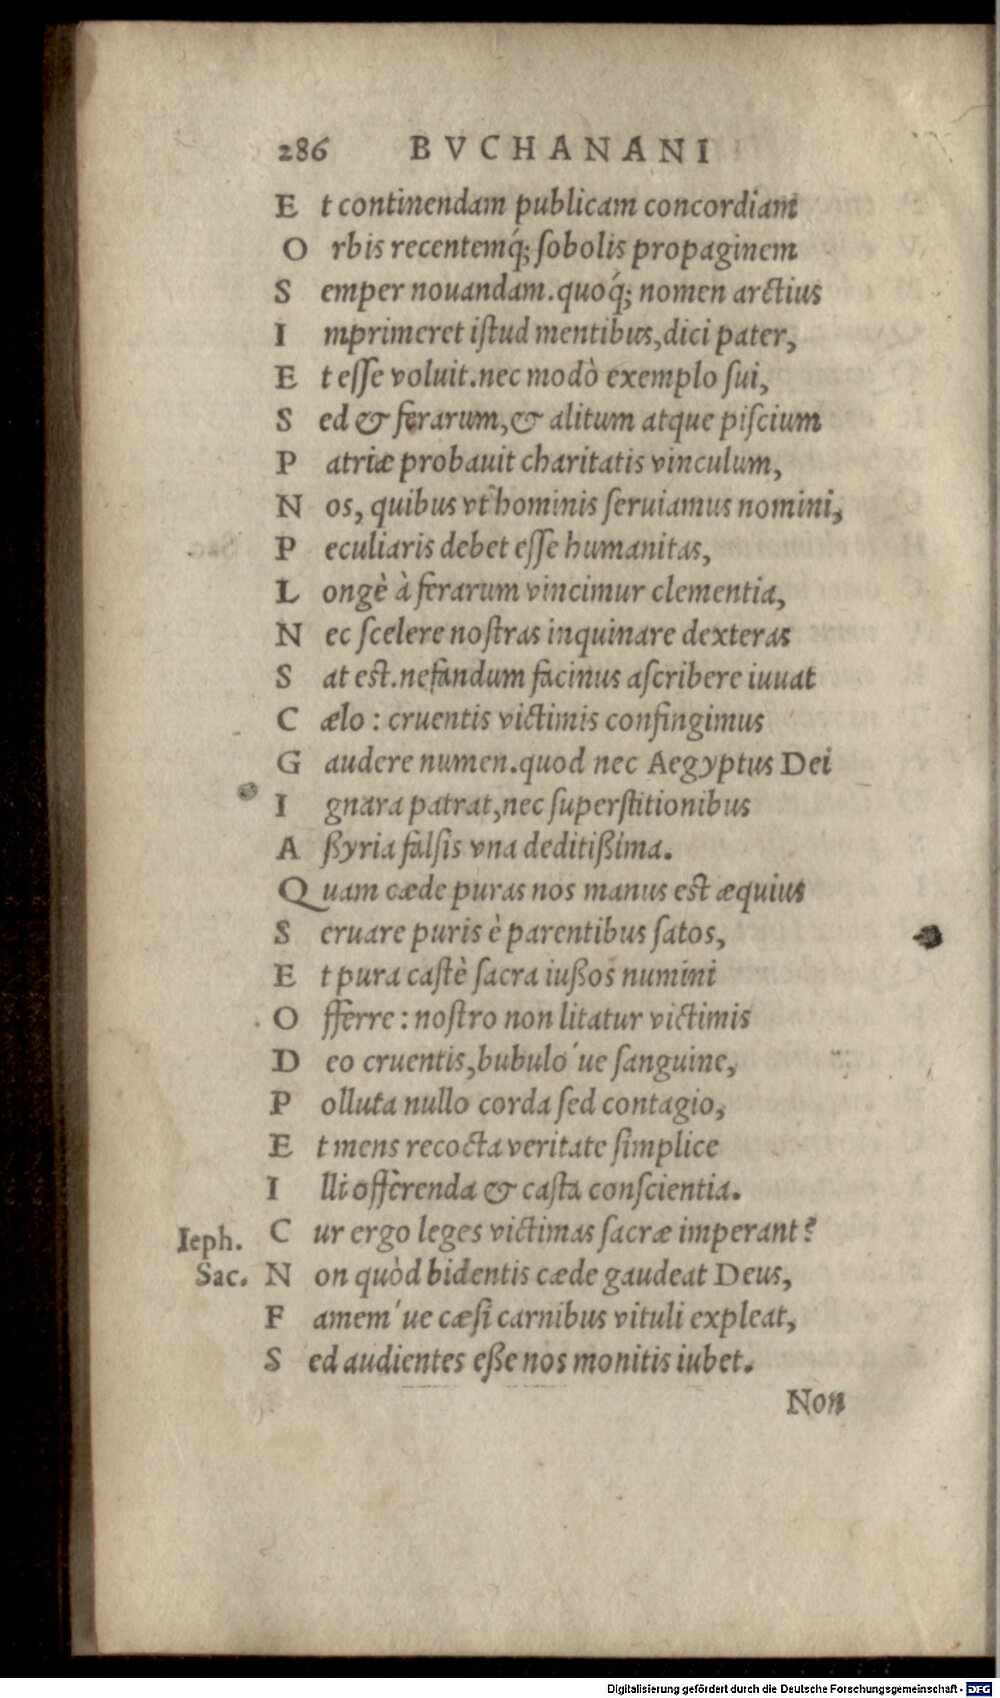 286 BVCHANANI
E t continendam publicam concordiam
O rbis recentemq́; ſobolis propaginem
S emper nouandam. quoq́; nomen arctius
I mprimeret iſtud mentibus, dici pater,
E t eſſe voluit. nec modò exemplo ſui,
S ed & ferarum, & alitum atque piſcium
P atriæ probauit charitatis vinculum,
N os, quibus vt hominis ſeruiamus nomini,
P eculiaris debet eſſe humanitas,
L ongè à ferarum vincimur clementia,
N ec ſcelere noſtras inquinare dexteras
S at est. nefandum facinus aſcribere iuuat
C ælo : cruentis victimis confingimus
G audere numen. quod nec Aegyptus Dei
I gnara patrat, nec ſuperſtitionibus
A ßyria falſis vna deditißima.
Q uam cæde puras nos manus est æquius
S eruare puris è parentibus ſatos,
E t pura caſtè ſacra iußos numini
O fferre : noſtro non litatur victimis
D eo cruentis, bubulo´ue ſanguine,
P olluta nullo corda ſed contagio,
E t mens recocta veritate ſimplice
I lli offerenda & caſta conſcientia.
Ieph. C ur ergo leges victimas ſacræ imperant?
Sac. N on quòd bidentis cæde gaudeat Deus,
F amem´ue cæſi carnibus vituli expleat,
S ed audientes eße nos monitis iubet.
Non
Digitalisierung gefördert durch die Deutsche Forschungsgemeinschaft - DFG